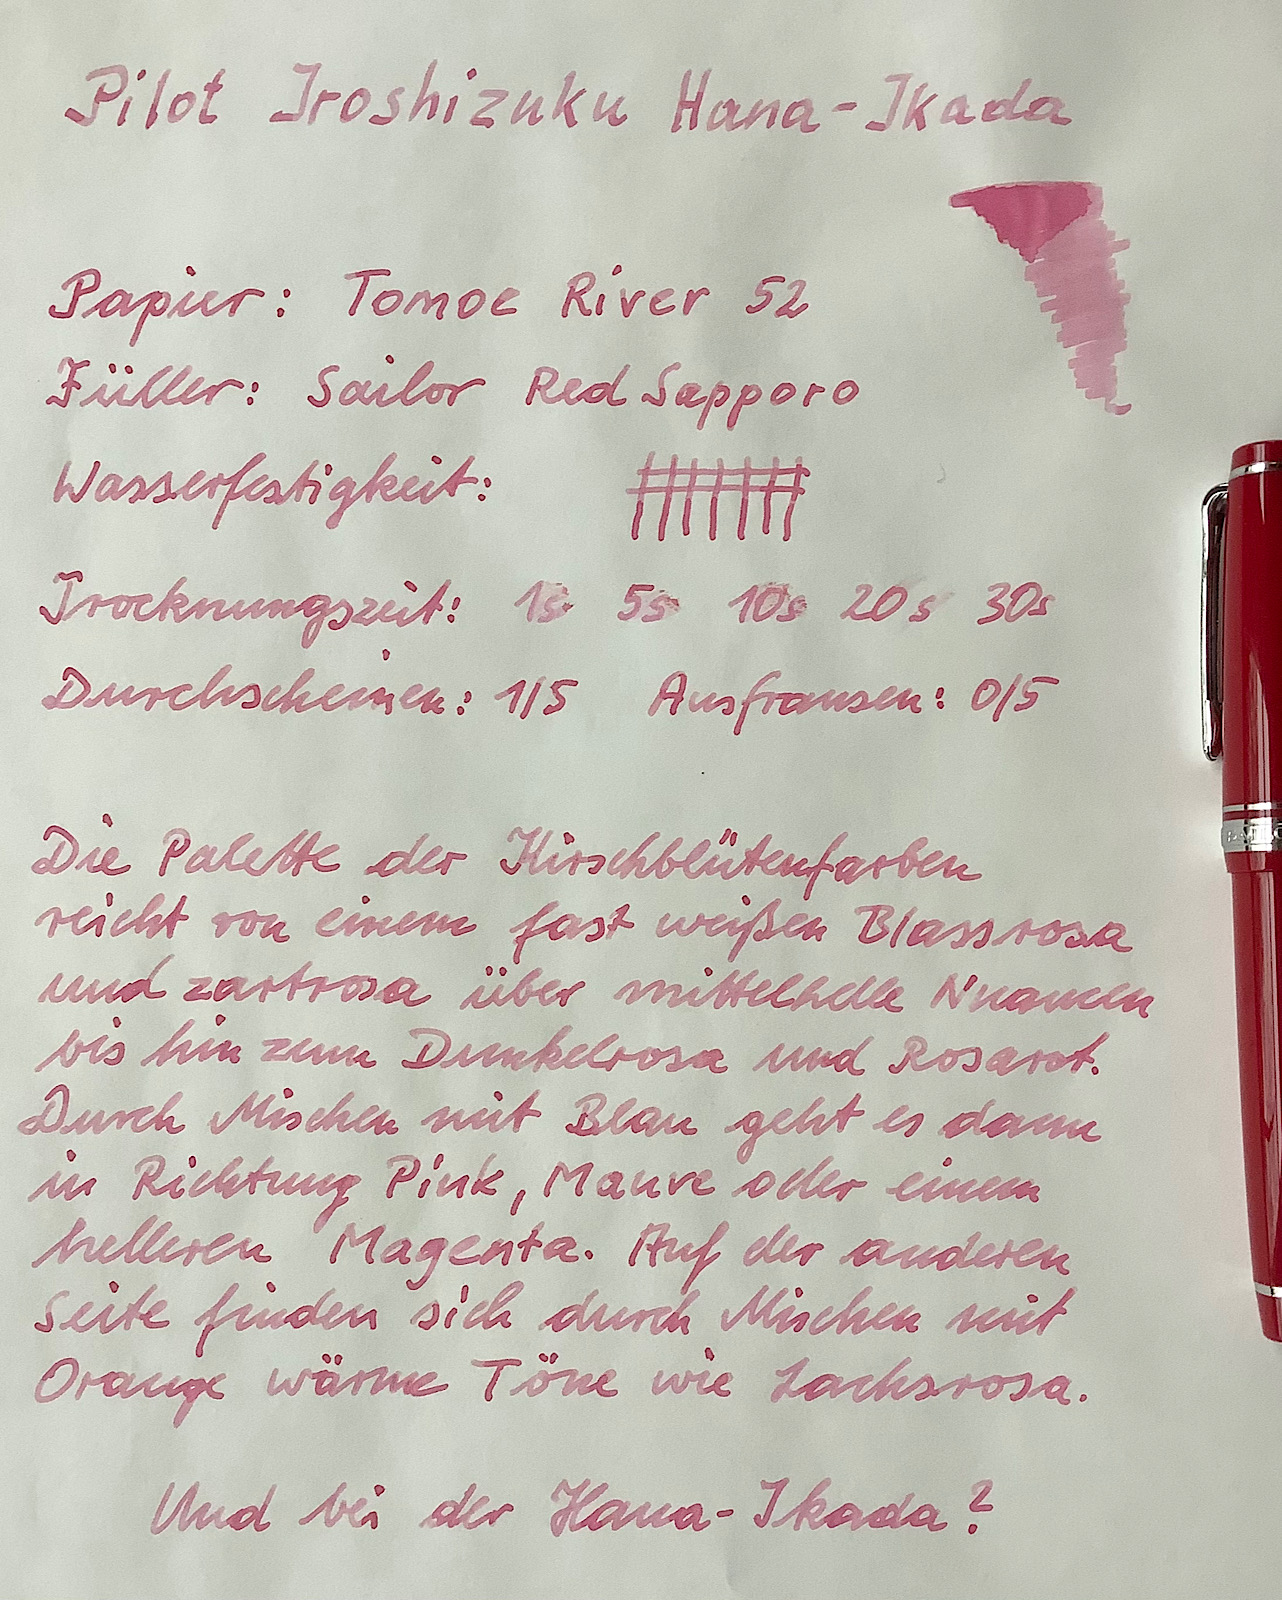 Pilot Iroshizuku Hana-Ikada
Papier: Tomoe River 52
Füller: Sailor Red Sapporo
Wasserfestigkeit:
Trocknungszeit: 1s 5s 10s 20s 30s
Durchscheinen: 1/5 Ausfransen: 0/5
Die Palette der Kirschblütenfarben
reicht von einem fast weißen Blassrosa
und zartrosa über mittelhelle Nuancen
bis hin zum Dunkelrosa und Rosarot.
Durch Mischen mit Blau geht es dann
in Richtung Pink, Mauve oder einem
helleren Magenta. Auf der anderen
Seite finden sich durch Mischen mit
Orange wärme Töne wie Lachsrosa.
Und bei der Hana-Ikada?